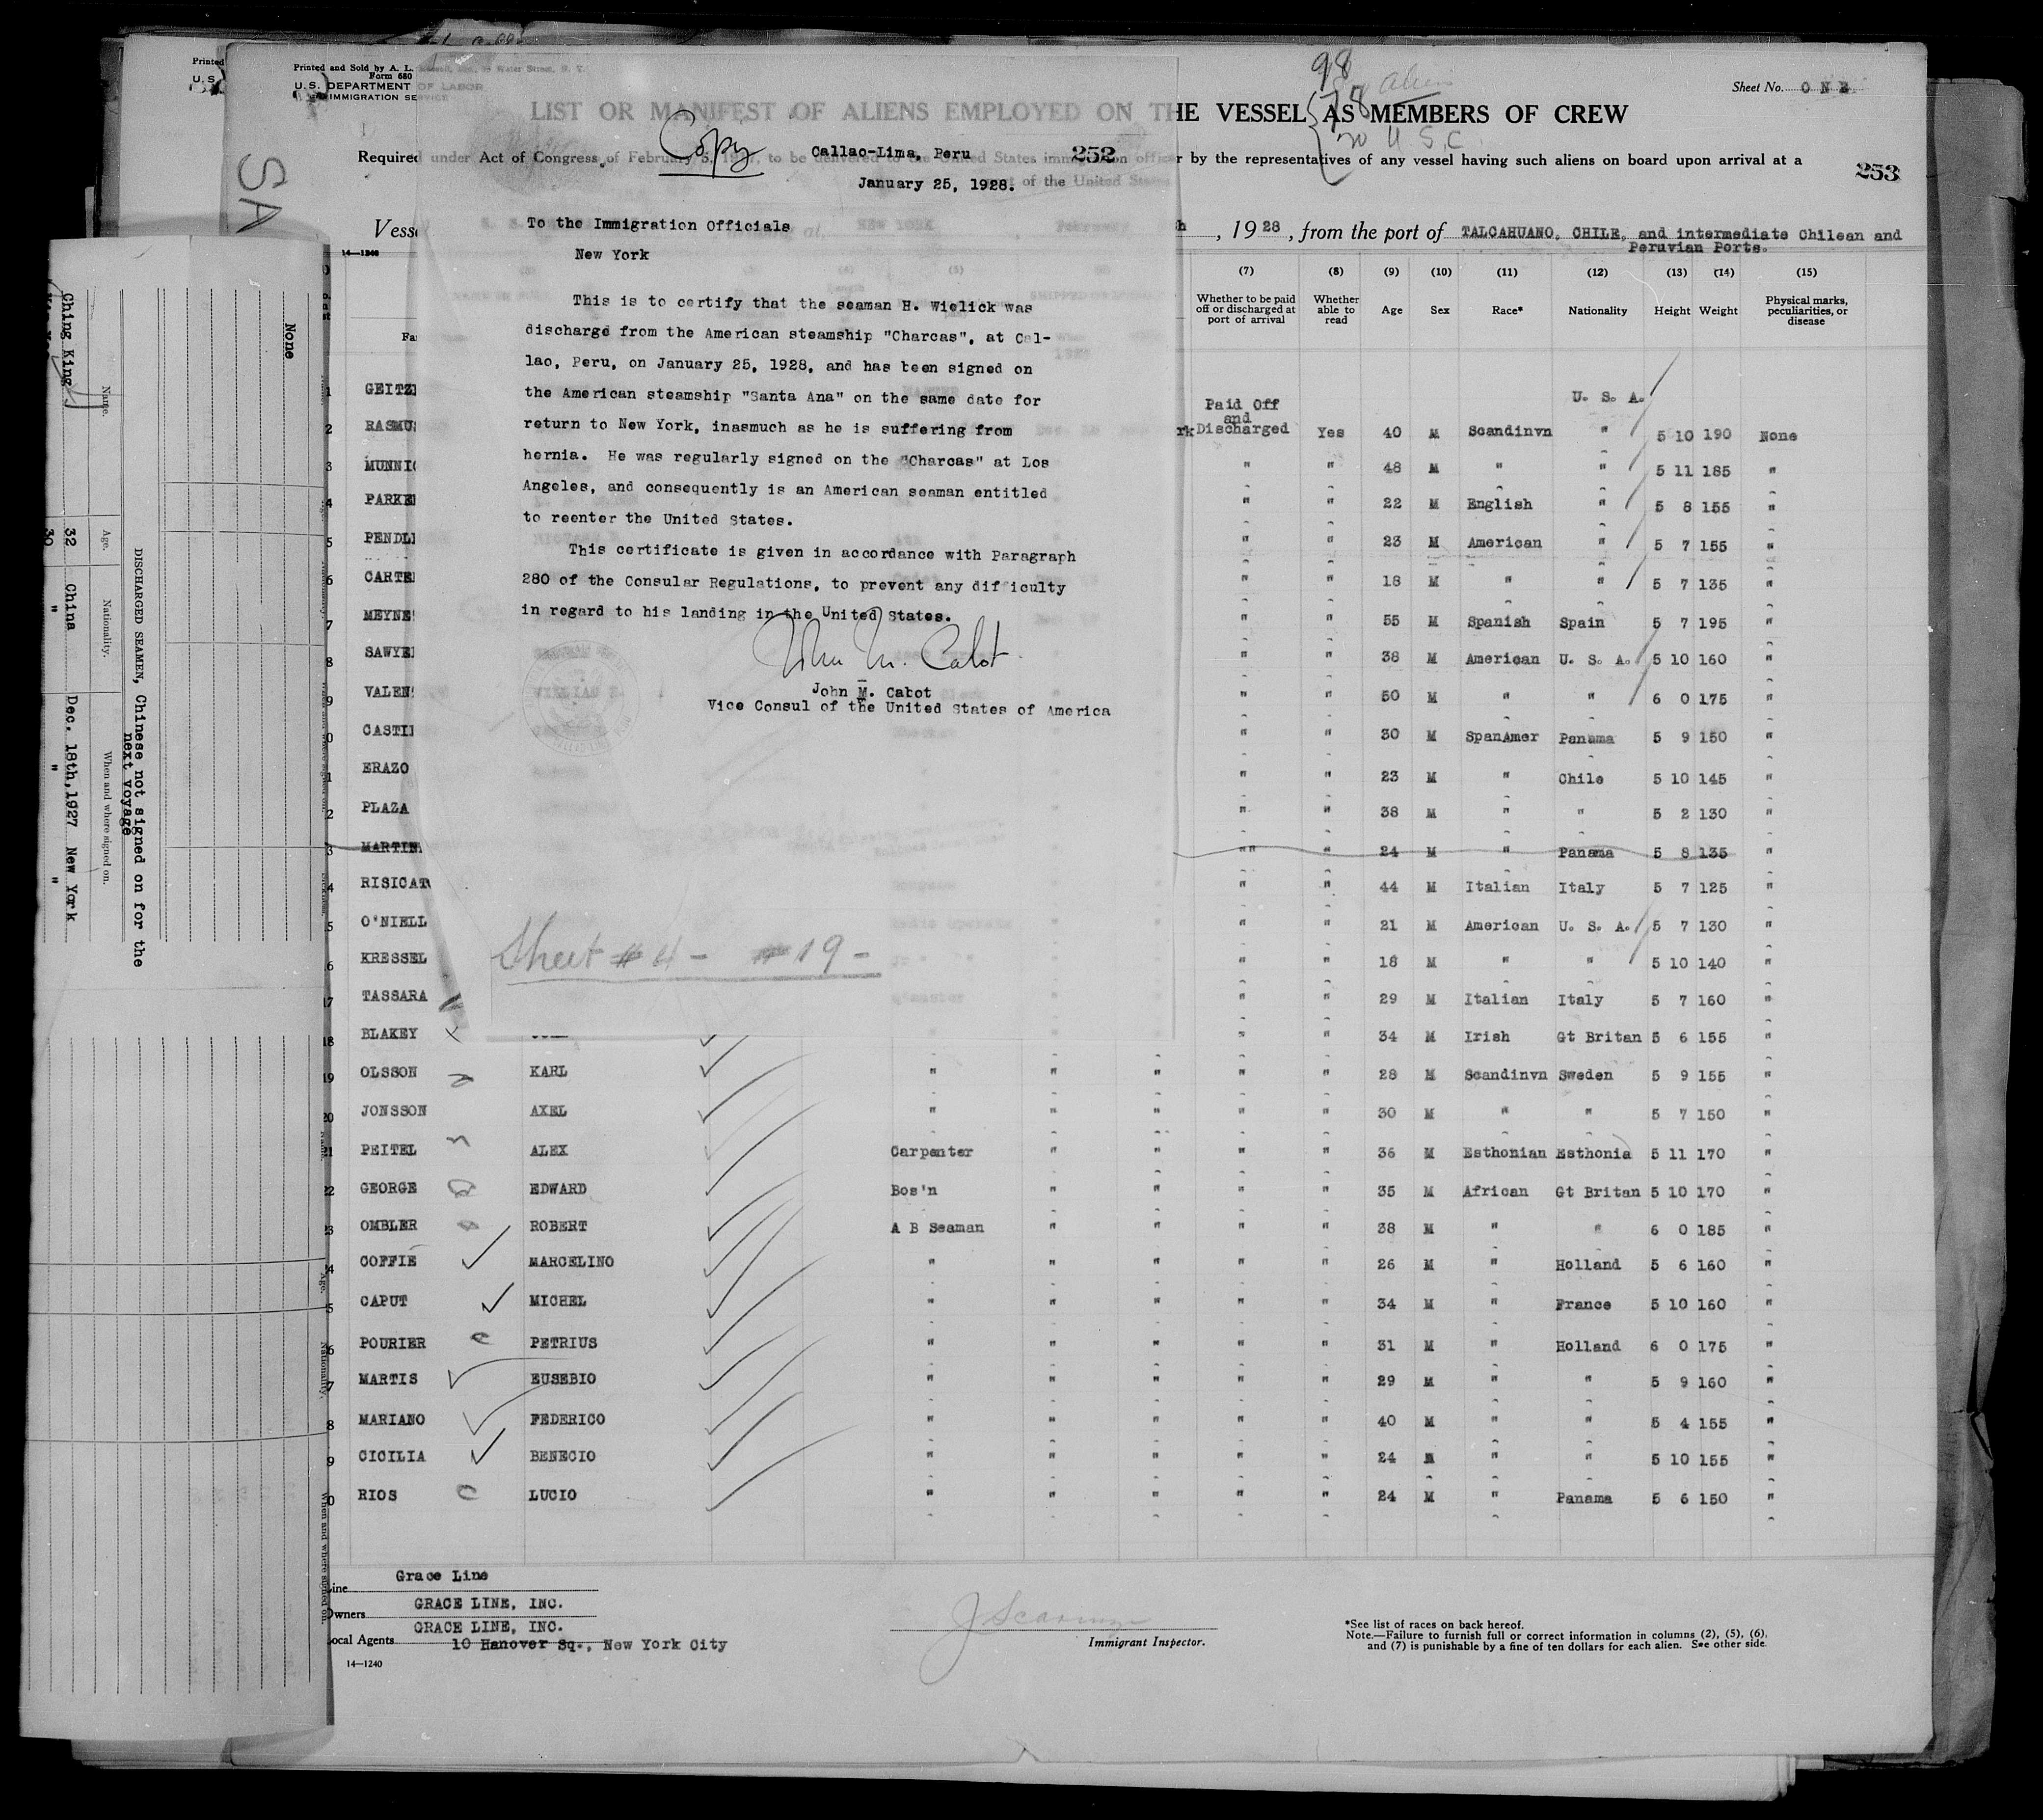 Printed and Sold by A. L.
Form 680
U. S. DEPARTMENT OF LABOR
IMMIGRATION SERVICE
Sheet No. ONE
98
78 alien
20 U S C
LIST OR MANIFEST OF ALIENS EMPLOYED ON THE VESSEL AS MEMBERS OF CREW
Required under Act of Congress of February 5, 1917, to be delivered to the United States immigration officer by the representatives of any vessel having such aliens on board upon arrival at a
253
, 1928, from the port of TALCAHUANO, CHILE, and intermediate Chilean and
Peruvian Ports.
14—1240
Copy
Callao-Lima, Peru
252
January 25, 1928.
To the Immigration Officials
New York
This is to certify that the seaman H. Wielick was
discharge from the American steamship "Charcas", at Cal-
lao, Peru, on January 25, 1928, and has been signed on
the American steamship "Santa Ana" on the same date for
return to New York, inasmuch as he is suffering from
hernia. He was regularly signed on the "Charcas" at Los
Angeles, and consequently is an American seaman entitled
to reenter the United States.
This certificate is given in accordance with Paragraph
280 of the Consular Regulations, to prevent any difficulty
in regard to his landing in the United States.
John M. Cabot
John M. Cabot
Vice Consul of the United States of America
Sheet # 4 - # 19 -
(7) (8) (9) (10) (11) (12) (13) (14) (15)
Whether to be paid off or discharged at port of arrival Whether able to read Age Sex Race* Nationality Height Weight Physical marks, peculiarities, or disease
U. S. A.
GEITZ
RASMU Paid Off and Discharged Yes 40 M Scandinvn " 5 10 190 None
MUNNI " " 48 M " " 5 11 185 "
PARKE " " 22 M English " 5 8 155 "
PENDL " " 23 M American " 5 7 155 "
CARTE " " 18 M " " 5 7 135 "
MEYNE " " 55 M Spanish Spain 5 7 195 "
SAWYE " " 38 M American U. S. A. 5 10 160 "
VALEN " " 50 M " " 6 0 175 "
CASTI " " 30 M SpanAmer Panama 5 9 150 "
ERAZO " " 23 M " Chile 5 10 145 "
PLAZA " " 38 M " " 5 2 130 "
MARTIN " " 24 M " Panama 5 8 135 "
RISICAT " " 44 M Italian Italy 5 7 125 "
O'NIELL " " 21 M American U. S. A. 5 7 130 "
KRESSEL " " 18 M " " 5 10 140 "
TASSARA " " 29 M Italian Italy 5 7 160 "
18 BLAKEY " " 34 M Irish Gt Britan 5 6 155 "
19 OLSSON KARL " " " " " 28 M Scandinvn Sweden 5 9 155 "
20 JONSSON AXEL " " " " " 30 M " " 5 7 150 "
21 PEITEL ALEX Carpenter " " " " 36 M Esthonian Esthonia 5 11 170 "
22 GEORGE EDWARD Bos'n " " " " 35 M African Gt Britan 5 10 170 "
3 OMBLER ROBERT A B Seaman " " " " 38 M " " 6 0 185 "
4 COFFIE MARCELINO " " " " " 26 M " Holland 5 6 160 "
5 CAPUT MICHEL " " " " " 34 M " France 5 10 160 "
6 POURIER PETRIUS " " " " " 31 M " Holland 6 0 175 "
7 MARTIS EUSEBIO " " " " " 29 M " " 5 9 160 "
8 MARIANO FEDERICO " " " " " 40 M " " 5 4 155 "
9 CICILIA BENECIO " " " " " 24 M " " 5 10 155 "
0 RIOS LUCIO " " " " " 24 M " Panama 5 6 150 "
Line Grace Line
Owners GRACE LINE, INC.
Local Agents GRACE LINE, INC.
10 Hanover Sq., New York City
14—1240
Immigrant Inspector.
*See list of races on back hereof.
Note.—Failure to furnish full or correct information in columns (2), (5), (6),
and (7) is punishable by a fine of ten dollars for each alien. See other side.
SA
None
DISCHARGED SEAMEN, Chinese not signed on for the
next voyage
Name. Age. Nationality. When and where signed on.
Ching King 32 China Dec. 18th, 1927 New York
30 " " "